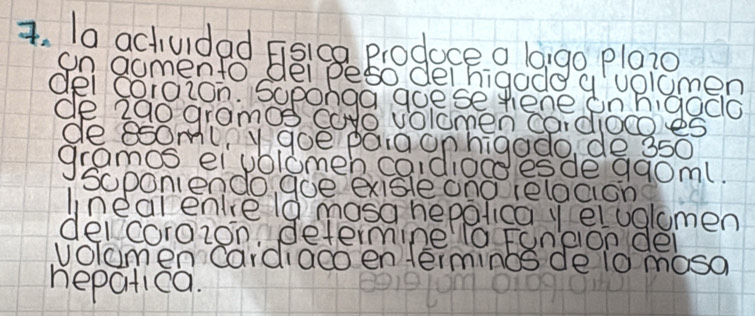 7. la actividad Física Produce a largo plazo
un aumento del Peso del higado y volumen
del corazon. Suponga que se tiene un higado
de 290 gramos cuyo volumen cardiaco es
de 850ml, y que para un higado de 350
gramos el volumen cardiaco es de 990ml.
Suponiendo que existe una relación
lineal entre la masa hepática y el volumen
del corazón, determine la Función del
volumen cardiaco en términos de la masa
hepatica.